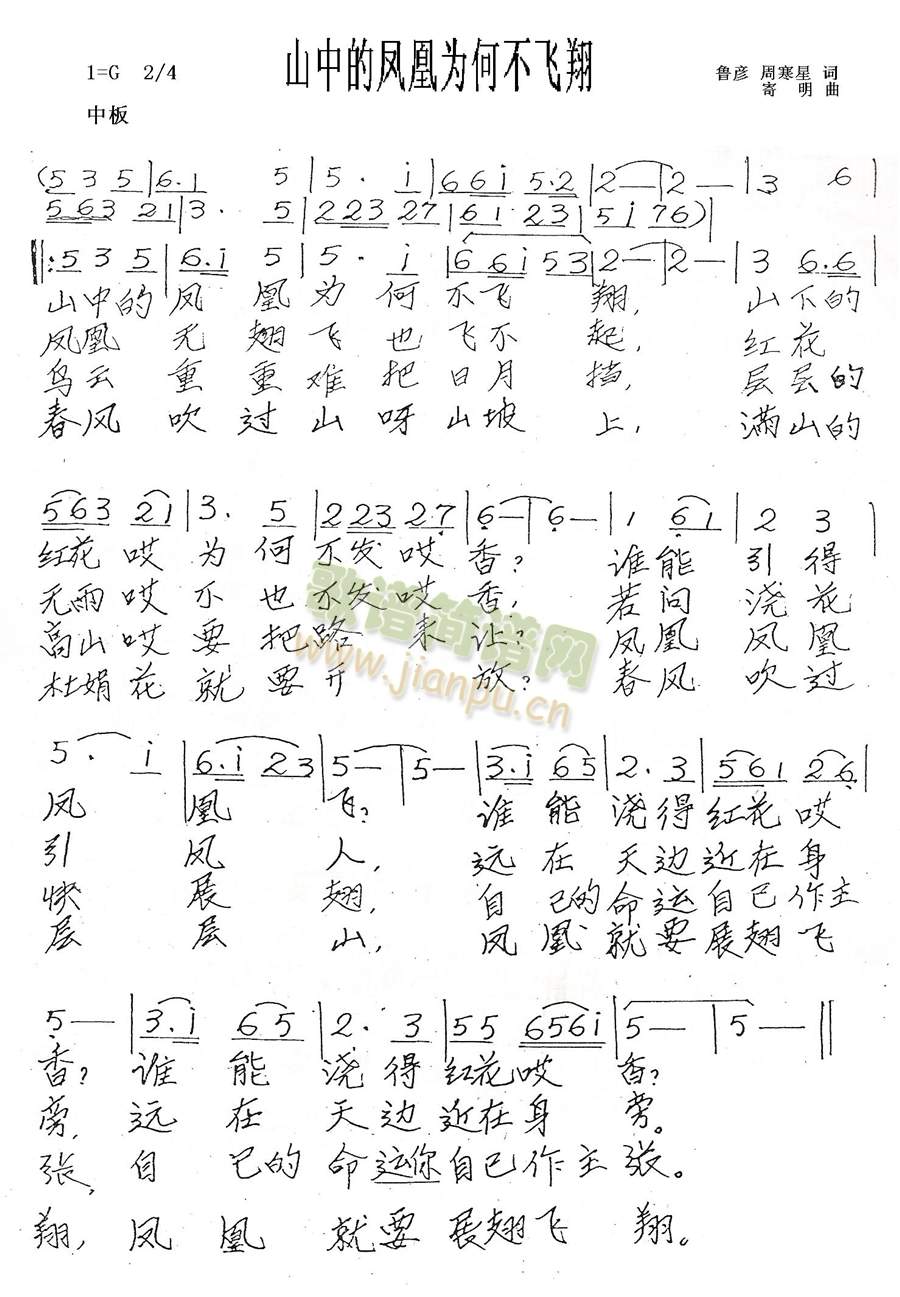 山中的凤凰为何不飞翔
1=G 2/4
鲁彦 周寒星 词
寄 明 曲
中板
(5 3 5|6.1 5|5. i|6 6 i 5.2|2—|2—|3 6|
5 6 3 2 1|3. 5|2 2 3 2 7|6 1 2 3|5 i 7 6)|
‖:5 3 5|6.i 5|5. i|6 6 i 5 3|2—|2—|3 6.6|
山中的凤凰为何不飞翔,山下的
凤凰无翅飞也飞不起,红花
乌云重重难把日月挡,层层的
春风吹过山呀山坡上,满山的
5 6 3 2 1|3. 5|2 2 3 2 7|6—|6—|1 6 1|2 3|
红花哎为何不发哎香?谁能引得
无雨哎不也不发哎香,若问浇花
高山哎要把路来让?凤凰凤凰
杜娟花就要开放?春风吹过
歌谱简谱网
www.jianpu.cn
5. i|6.i 2 3|5—|5—|3.i 6 5|2.3|5 6 1 2 6|
凤凰飞?谁能浇得红花哎
引凤人,远在天边近在身
快展翅,自己的命运自己作主
层层山,凤凰就要展翅飞
5—|3.i 6 5|2. 3|5 5 6 5 6 i|5—|5—‖
香?谁能浇得红花哎香?
旁,远在天边近在身旁。
张,自己的命运你自己作主张。
翔,凤凰就要展翅飞翔。